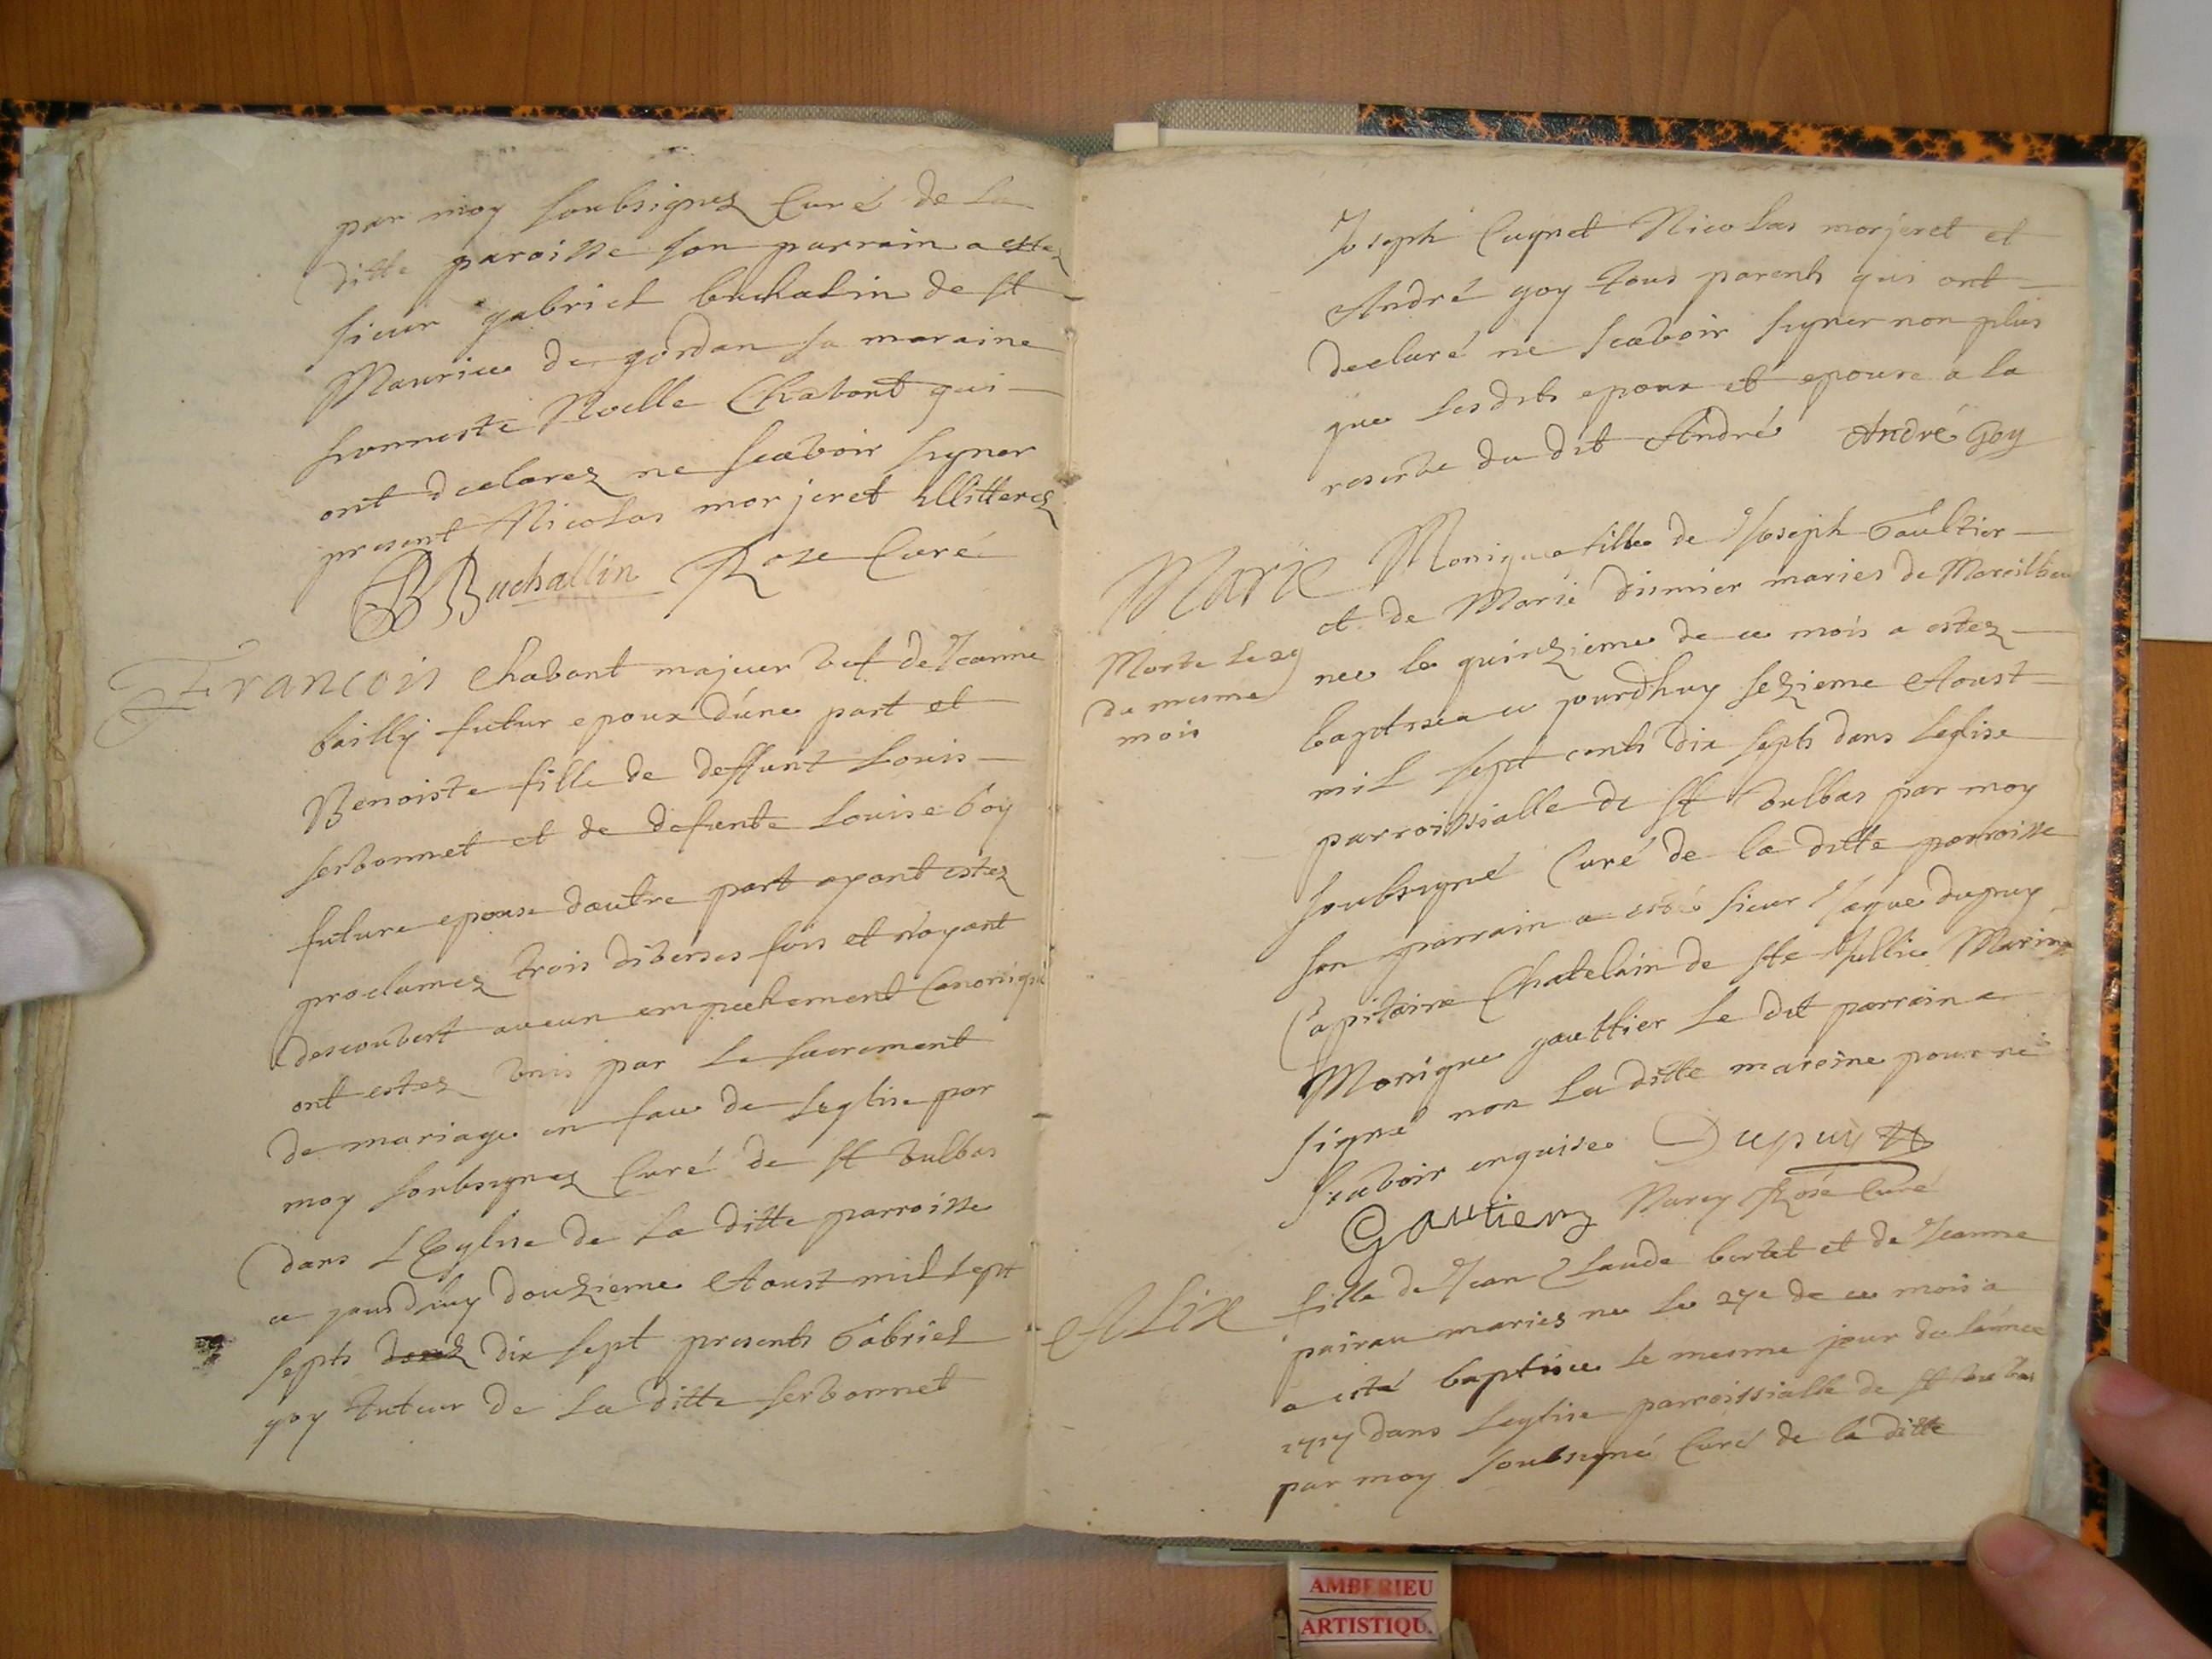 par moy soubsignez Curé de La
ditte paroisse son parrain a estez
sieur gabriel buchalin de st
Maurice de gordan sa maraine
honneste Noelle Chavont qui
ont declarez ne scavoir signer
present Nicolas morjeret illitterez
BBuchallin Roze Curé
Francois Chavant majeur vef de Jeanne
bailly futur epoux d'une part et
Benoiste fille de deffunt Louis
servonnet et de defunte Louise Goy
future epouse dautre part ayant estez
proclamez trois diverses fois et n'ayant
descouvert aucun empechement Canonique
ont estez unis par le sacrement
de mariage en face de Leglise par
moy soubsignez Curé de st vulbas
dans L'Eglise de La ditte parroisse
ce jourdhuy douzieme Aoust mil sept
septs dix sept presents Gabriel
goy tuteur de La ditte servonnet
Joseph Cuynet Nicolas morjeret et
André goy tous parents qui ont
declaré ne scavoir signer non plus
que Lesdits epoux et epouse a la
reserve du dit André André Goy
Marie Monique fille de Joseph Gaultier
et de Marie disnier maries de Marcilleu
nee le quinzieme de ce mois a estez
baptisea ce jourdhuy sezieme Aoust
mil sept cents dix septs dans Leglise
parroissialle de st vulbas par moy
soubsigné Curé de la ditte parroisse
son parrain a esté sieur Jaque dupuy
Capitaine Chatelain de ste Jullie Maraine
Monique gaultier Le dit parrain a
signé non La ditte maraine pour ne
scavoir enquise Dupuy
Gautier Roze Curé
Morte Le 29
du mesme
mois
Alix fille de Jean Claude bertet et de Jeanne
pairau maries nee Le 27e de ce mois a
a esté baptisee le mesme jour de Lannee
1717 dans Leglise parroissialle de st vulbas
par moy soubsigné Curé de la ditte
AMBERIEU
ARTISTIQU